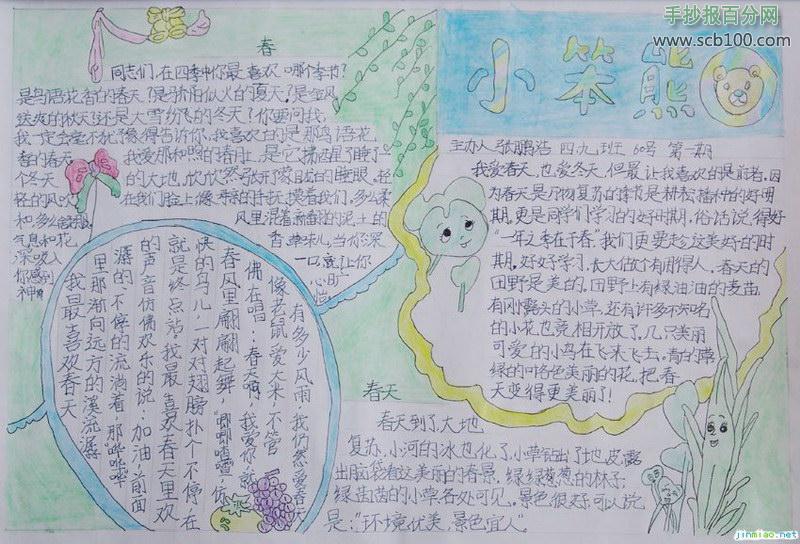 手抄报百分网
www.scb100.com
小笨熊
主办人 张鹏浩 四九班 60号 第一期
春
同志们,在四季中你最喜欢哪个季节?
是鸟语花香的春天?是骄阳似火的夏天?是金风
送爽的秋天?还是大雪纷飞的冬天?你要问我,
我一定会毫不犹豫得告诉你,我喜欢的是那鸟语花
香的春天
我爱那和煦的春阳,是它拂醒了睡了一
个冬天
的大地,欣欣然张开了朦胧的睡眼。轻
轻的风吹
在我们脸上像母亲的手抚摸着我们,多么柔
和,多么舒服。
风里混着新翻的泥土的
气息和花
香,草味儿,当你深
深吸入
一口,就让你
你感到
心旷
神
怡
我最喜欢春天
里那渐向远方的溪流潺
潺的不停的流淌着,那"哗哗"
的声音仿佛欢乐的说:加油,前面
就是终点站。我最喜欢春天里欢
快的鸟儿,一对对翅膀扑个不停,在
春风里翩翩起舞"唧唧喳喳",仿
佛在唱:春天啊,我爱你,就
像老鼠爱大米,不管
有多少风雨我仍然爱春天
我爱春天,也爱冬天,但最让我喜欢的是前者,因
为春天是万物复苏的季节是耕耘播种的好时
期,更是同学们学习的好时期,俗话说得好
"一年之季在于春"我们更要趁这美好的时
期,好好学习,长大后做个有用得人。春天的
田野是美的,田野里有绿油油的麦苗
有刚露头的小草,还有许多不知名
的小花也竞相开放了,几只美丽
可爱的小鸟在飞来飞去,青的草
绿的叶各色美丽的花,把春
天变得更美丽了!
春天
春天到了,大地
复苏,小河的冰也化了,小草钻出了地皮,露
出脑袋看这美丽的春景,绿绿葱葱的林子;
绿茵茵的小草各处可见,景色很好,可以说
是:"环境优美,景色宜人"
jinmiao.net